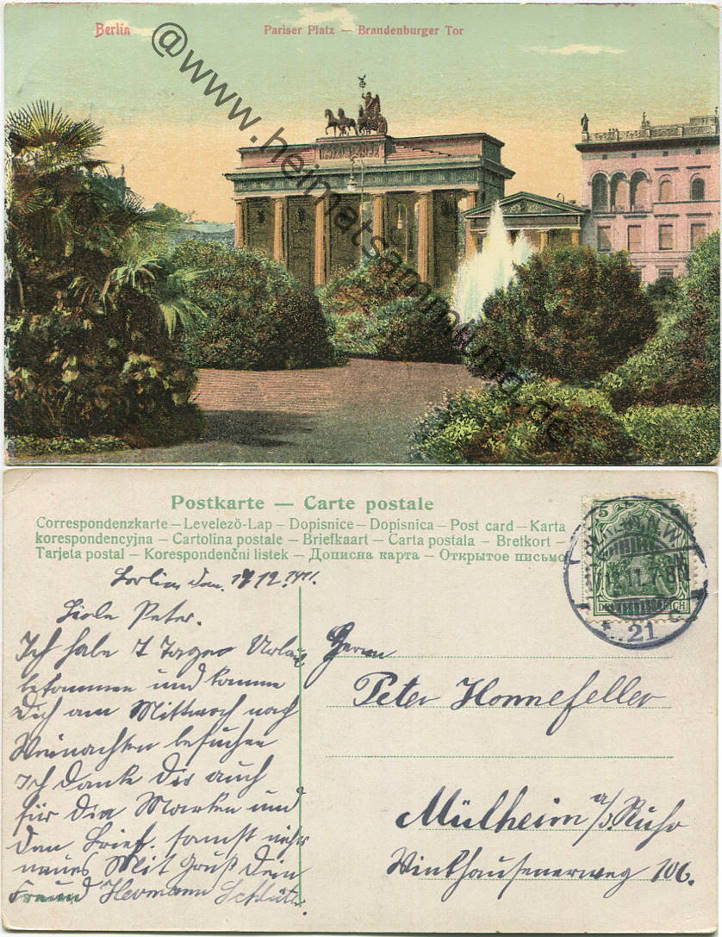 Berlin
Pariser Platz — Brandenburger Tor
@www.heimatsammlung.de
Postkarte — Carte postale
Correspondenzkarte – Levelezö-Lap – Dopisnice – Dopisnica – Post card – Karta
korespondencyjna – Cartolina postale – Briefkaart – Carta postala – Bretkort –
Tarjeta postal – Korespondenční listek – Дописна карта – Открытое письмо
Berlin den 17.12.1911.
Liebe Peter.
Ich habe 7 Tage Urlaub
bekommen und komme
Dich am Mittwoch nach
Weinachten besuchen
ich danke Dir auch
für die Marken und
den Brief. sonst nichts
neues Mit Gruß Dein
Freund Hermann Schlüter
Herrn
Peter Honnefeller
Mülheim a/d Ruhr
Winkhausenerweg 106.
5
BERLIN N.W.
21
REICH